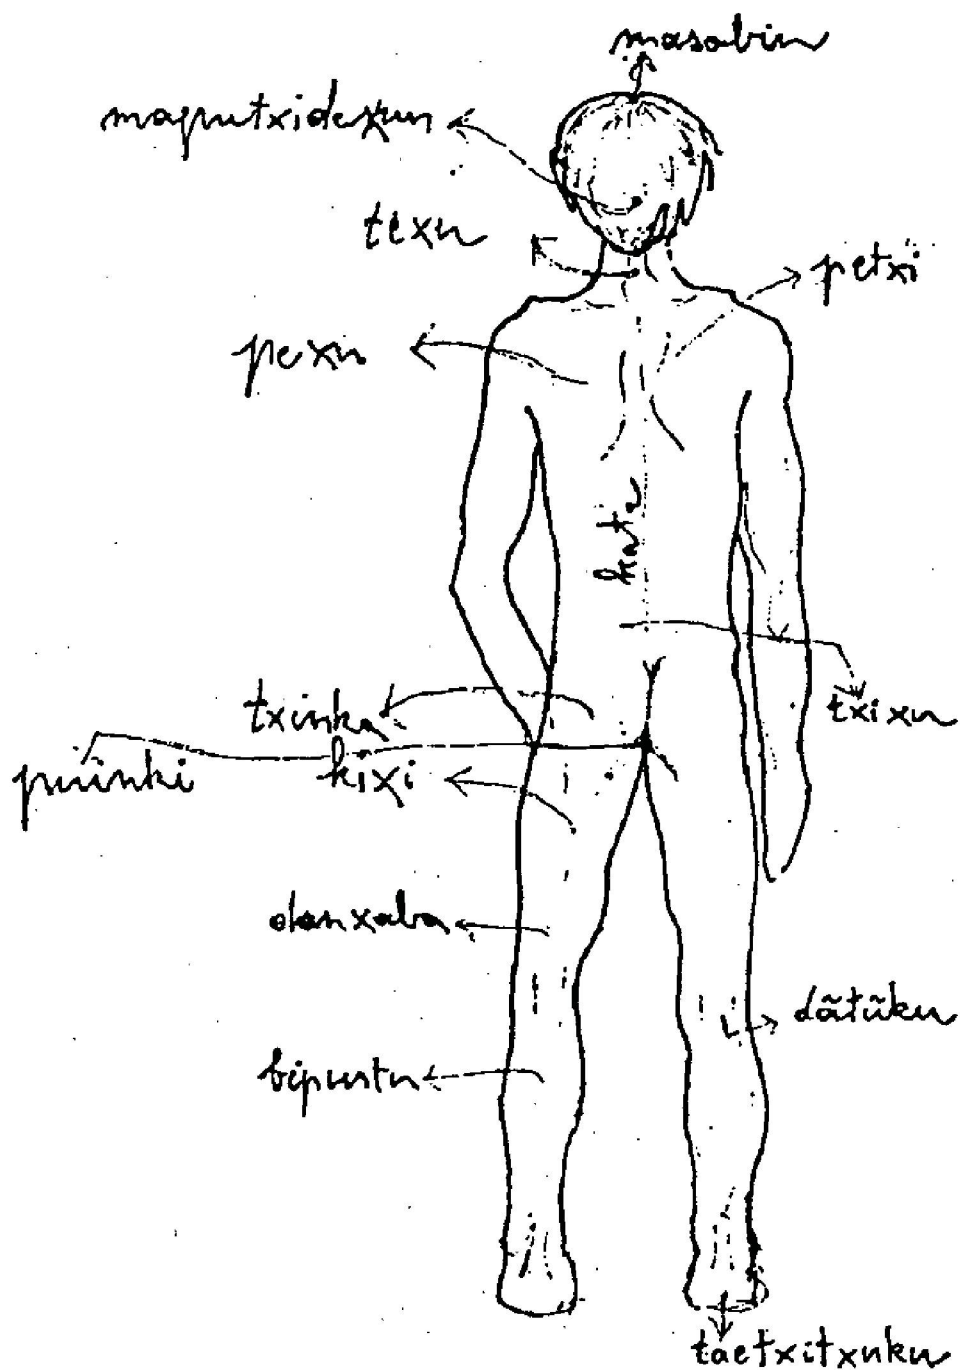 masobin
maputxidexun
texu
petxi
pexu
kate
txinka
txixu
puinki
kixi
danxaba
dãtũku
bipustu
taetxitxuku